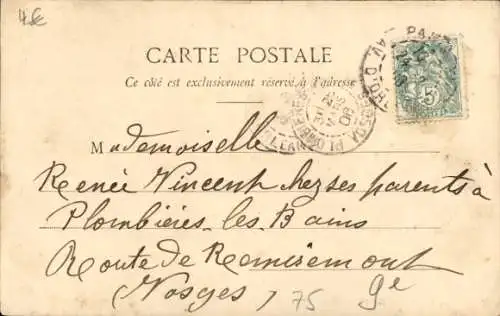 4 €
CARTE POSTALE
Ce côté est exclusivement réservé à l'adresse
Mademoiselle
Renée Vincent chez ses parents à
Plombières-les-Bains
Route de Remiremont
Vosges
75
5